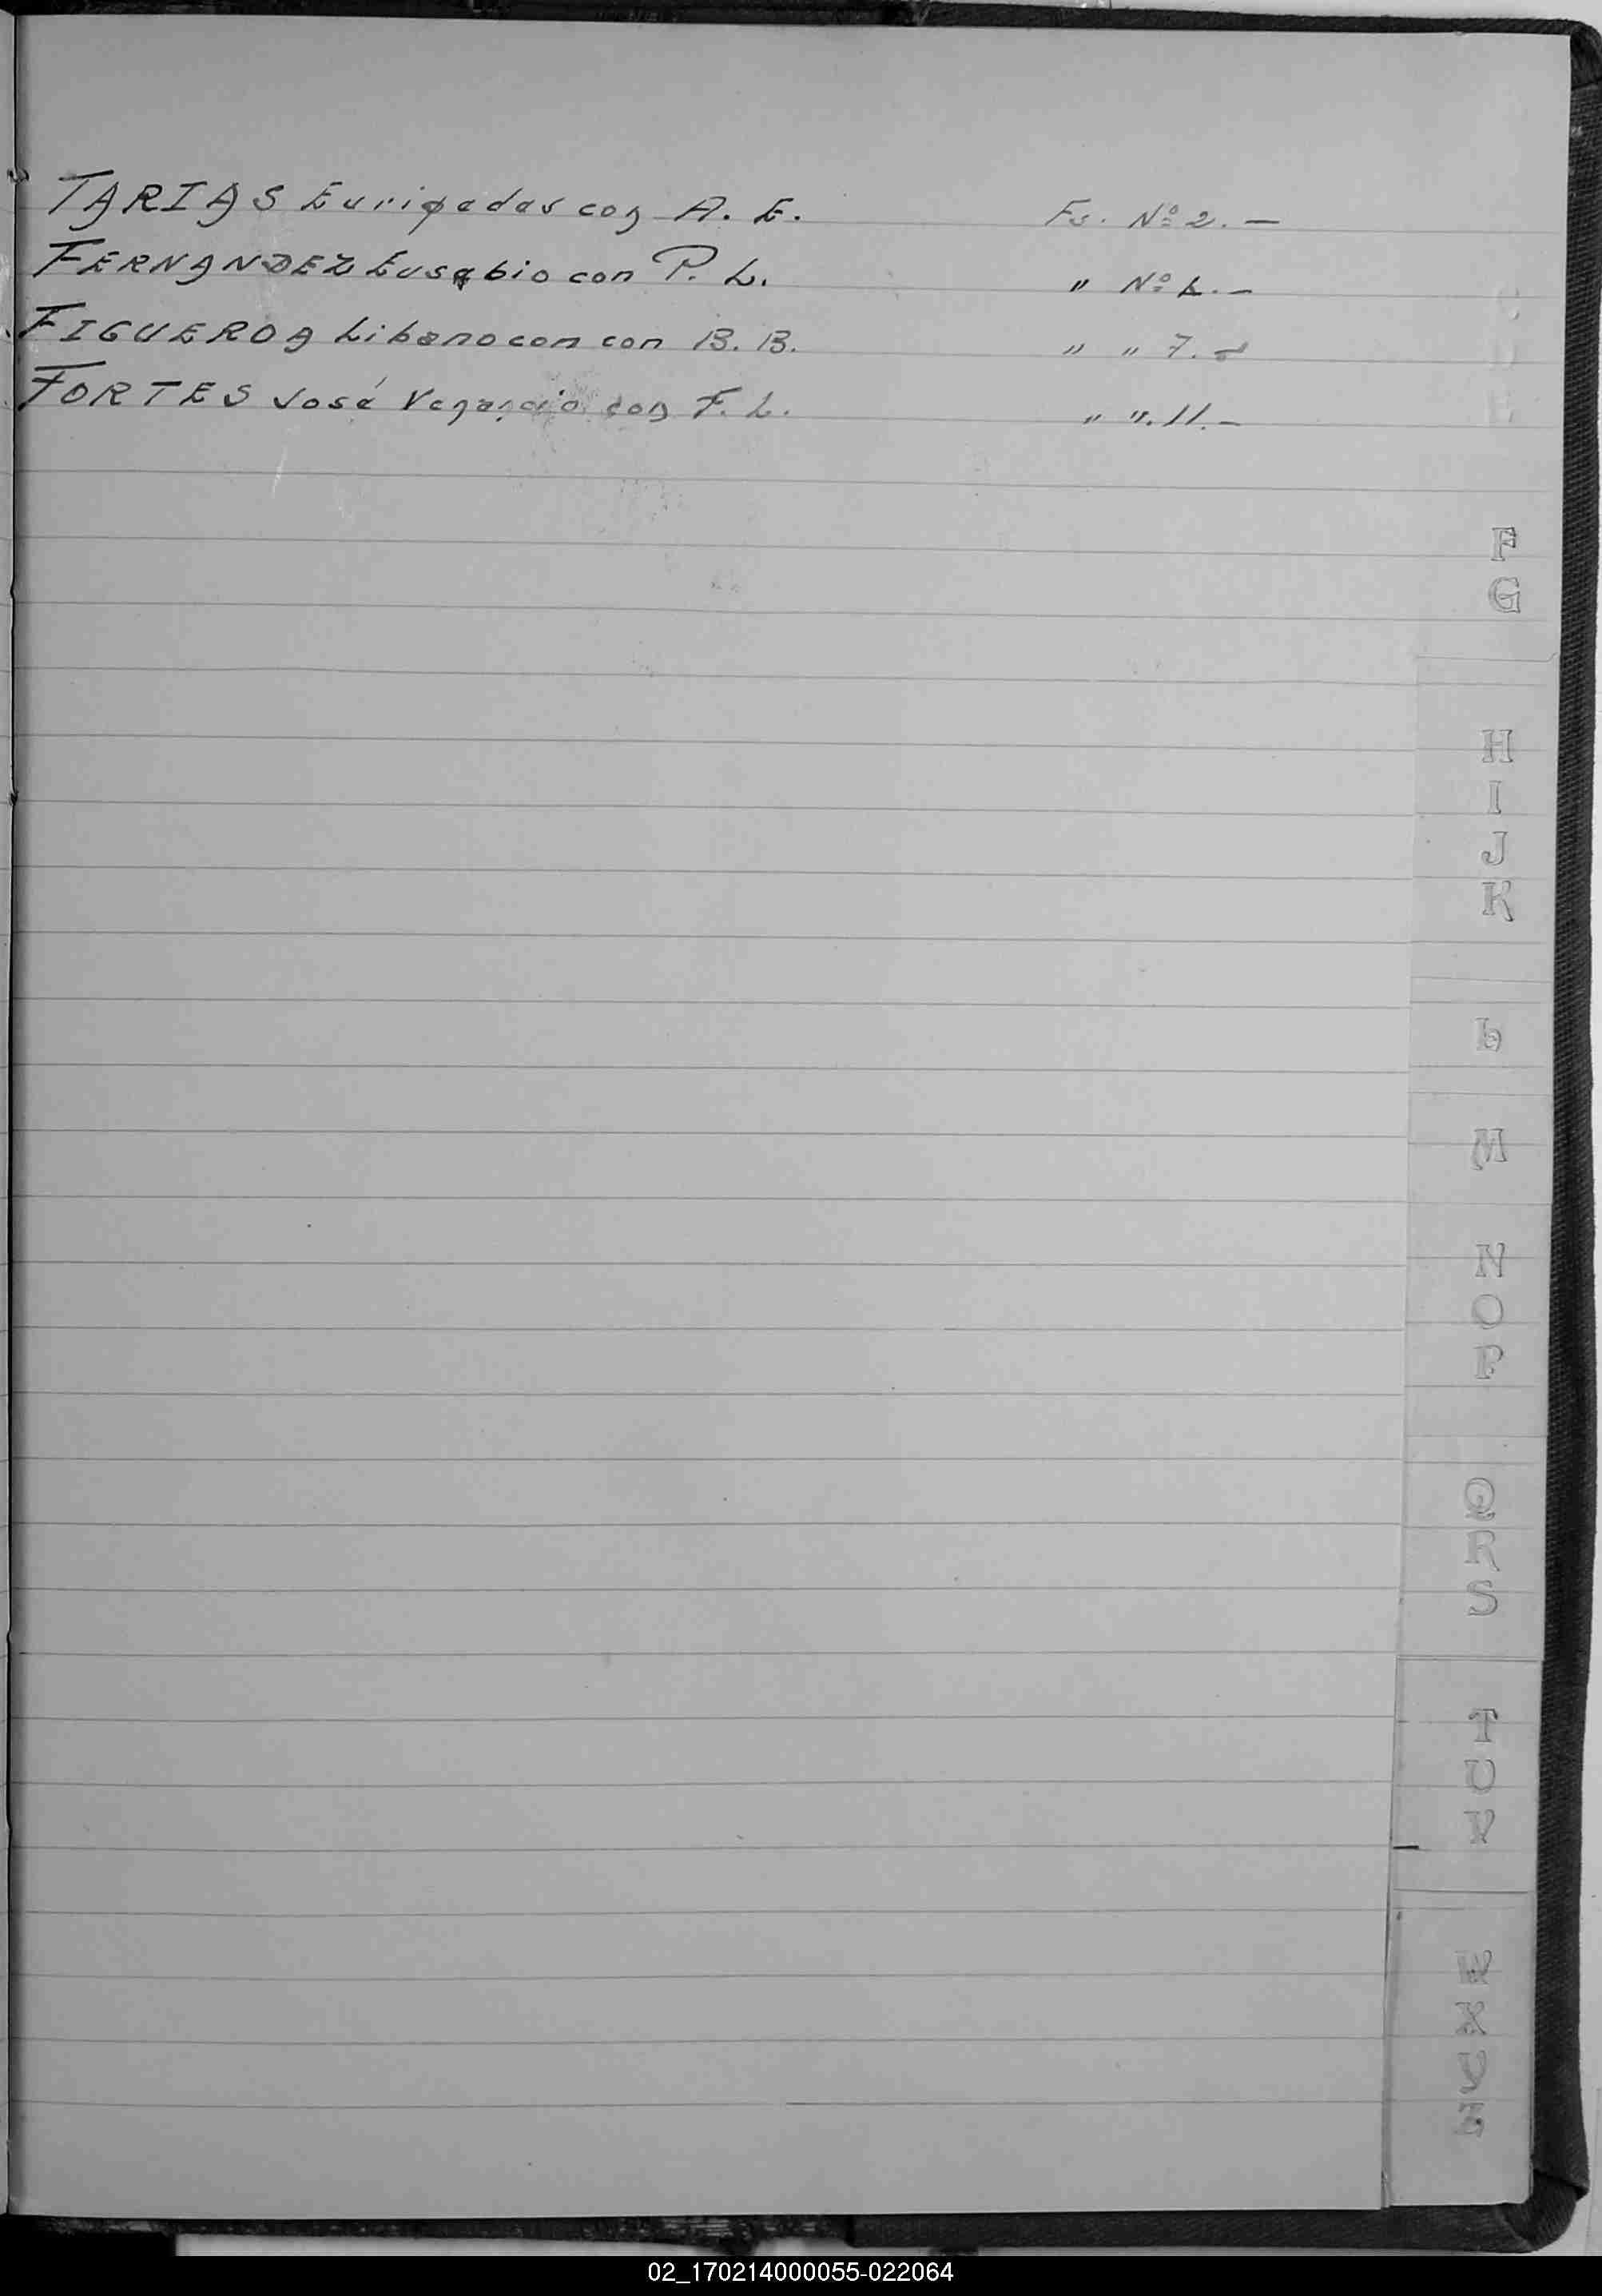 FARIAS Euripedes con A. E. Fs. Nº 2. —
FERNANDEZ Eusebio con P. L. " Nº 6. —
FIGUEROA Libano con con B. B. " " 7. —
FORTES José Venancio con F. L. " ". 11. —
F
G
H
I
J
K
L
M
N
O
P
Q
R
S
T
U
V
W
X
Y
Z
02_170214000055-022064